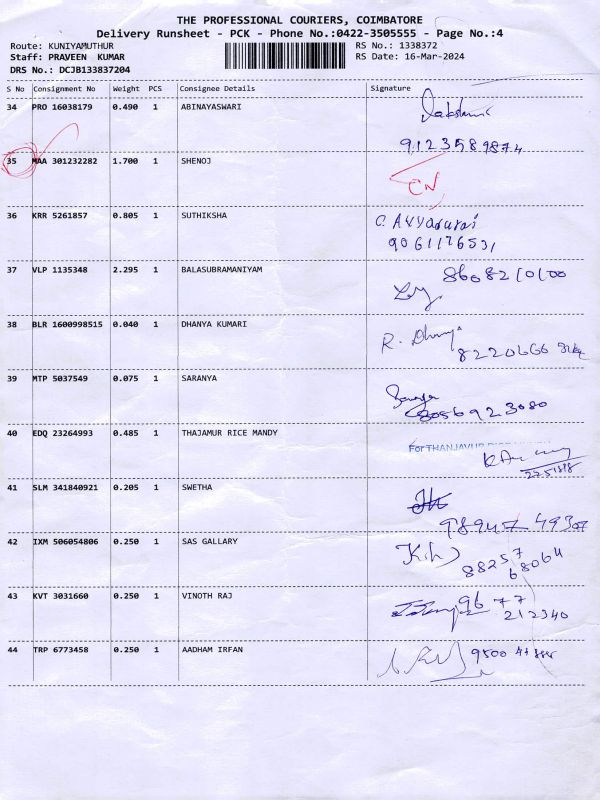 THE PROFESSIONAL COURIERS, COIMBATORE
Delivery Runsheet - PCK - Phone No.:0422-3505555 - Page No.:4
Route: KUNIYAMUTHUR RS No.: 1338372
Staff: PRAVEEN KUMAR RS Date: 16-Mar-2024
DRS No.: DCJB133837204
S No Consignment No Weight PCS Consignee Details Signature
34 PRO 16038179 0.490 1 ABINAYASWARI
9123589874
35 MAA 301232282 1.700 1 SHENOJ CN
36 KRR 5261857 0.805 1 SUTHIKSHA
9061176531
37 VLP 1135348 2.295 1 BALASUBRAMANIYAM 8608210100
38 BLR 1600998515 0.040 1 DHANYA KUMARI R. Dhanya
39 MTP 5037549 0.075 1 SARANYA Saranya
8056923080
40 EDQ 23264993 0.485 1 THAJAMUR RICE MANDY For THANJAVUR
41 SLM 341840921 0.205 1 SWETHA
42 IXM 506054806 0.250 1 SAS GALLARY
88257
68064
43 KVT 3031660 0.250 1 VINOTH RAJ 9677
212340
44 TRP 6773458 0.250 1 AADHAM IRFAN 9500